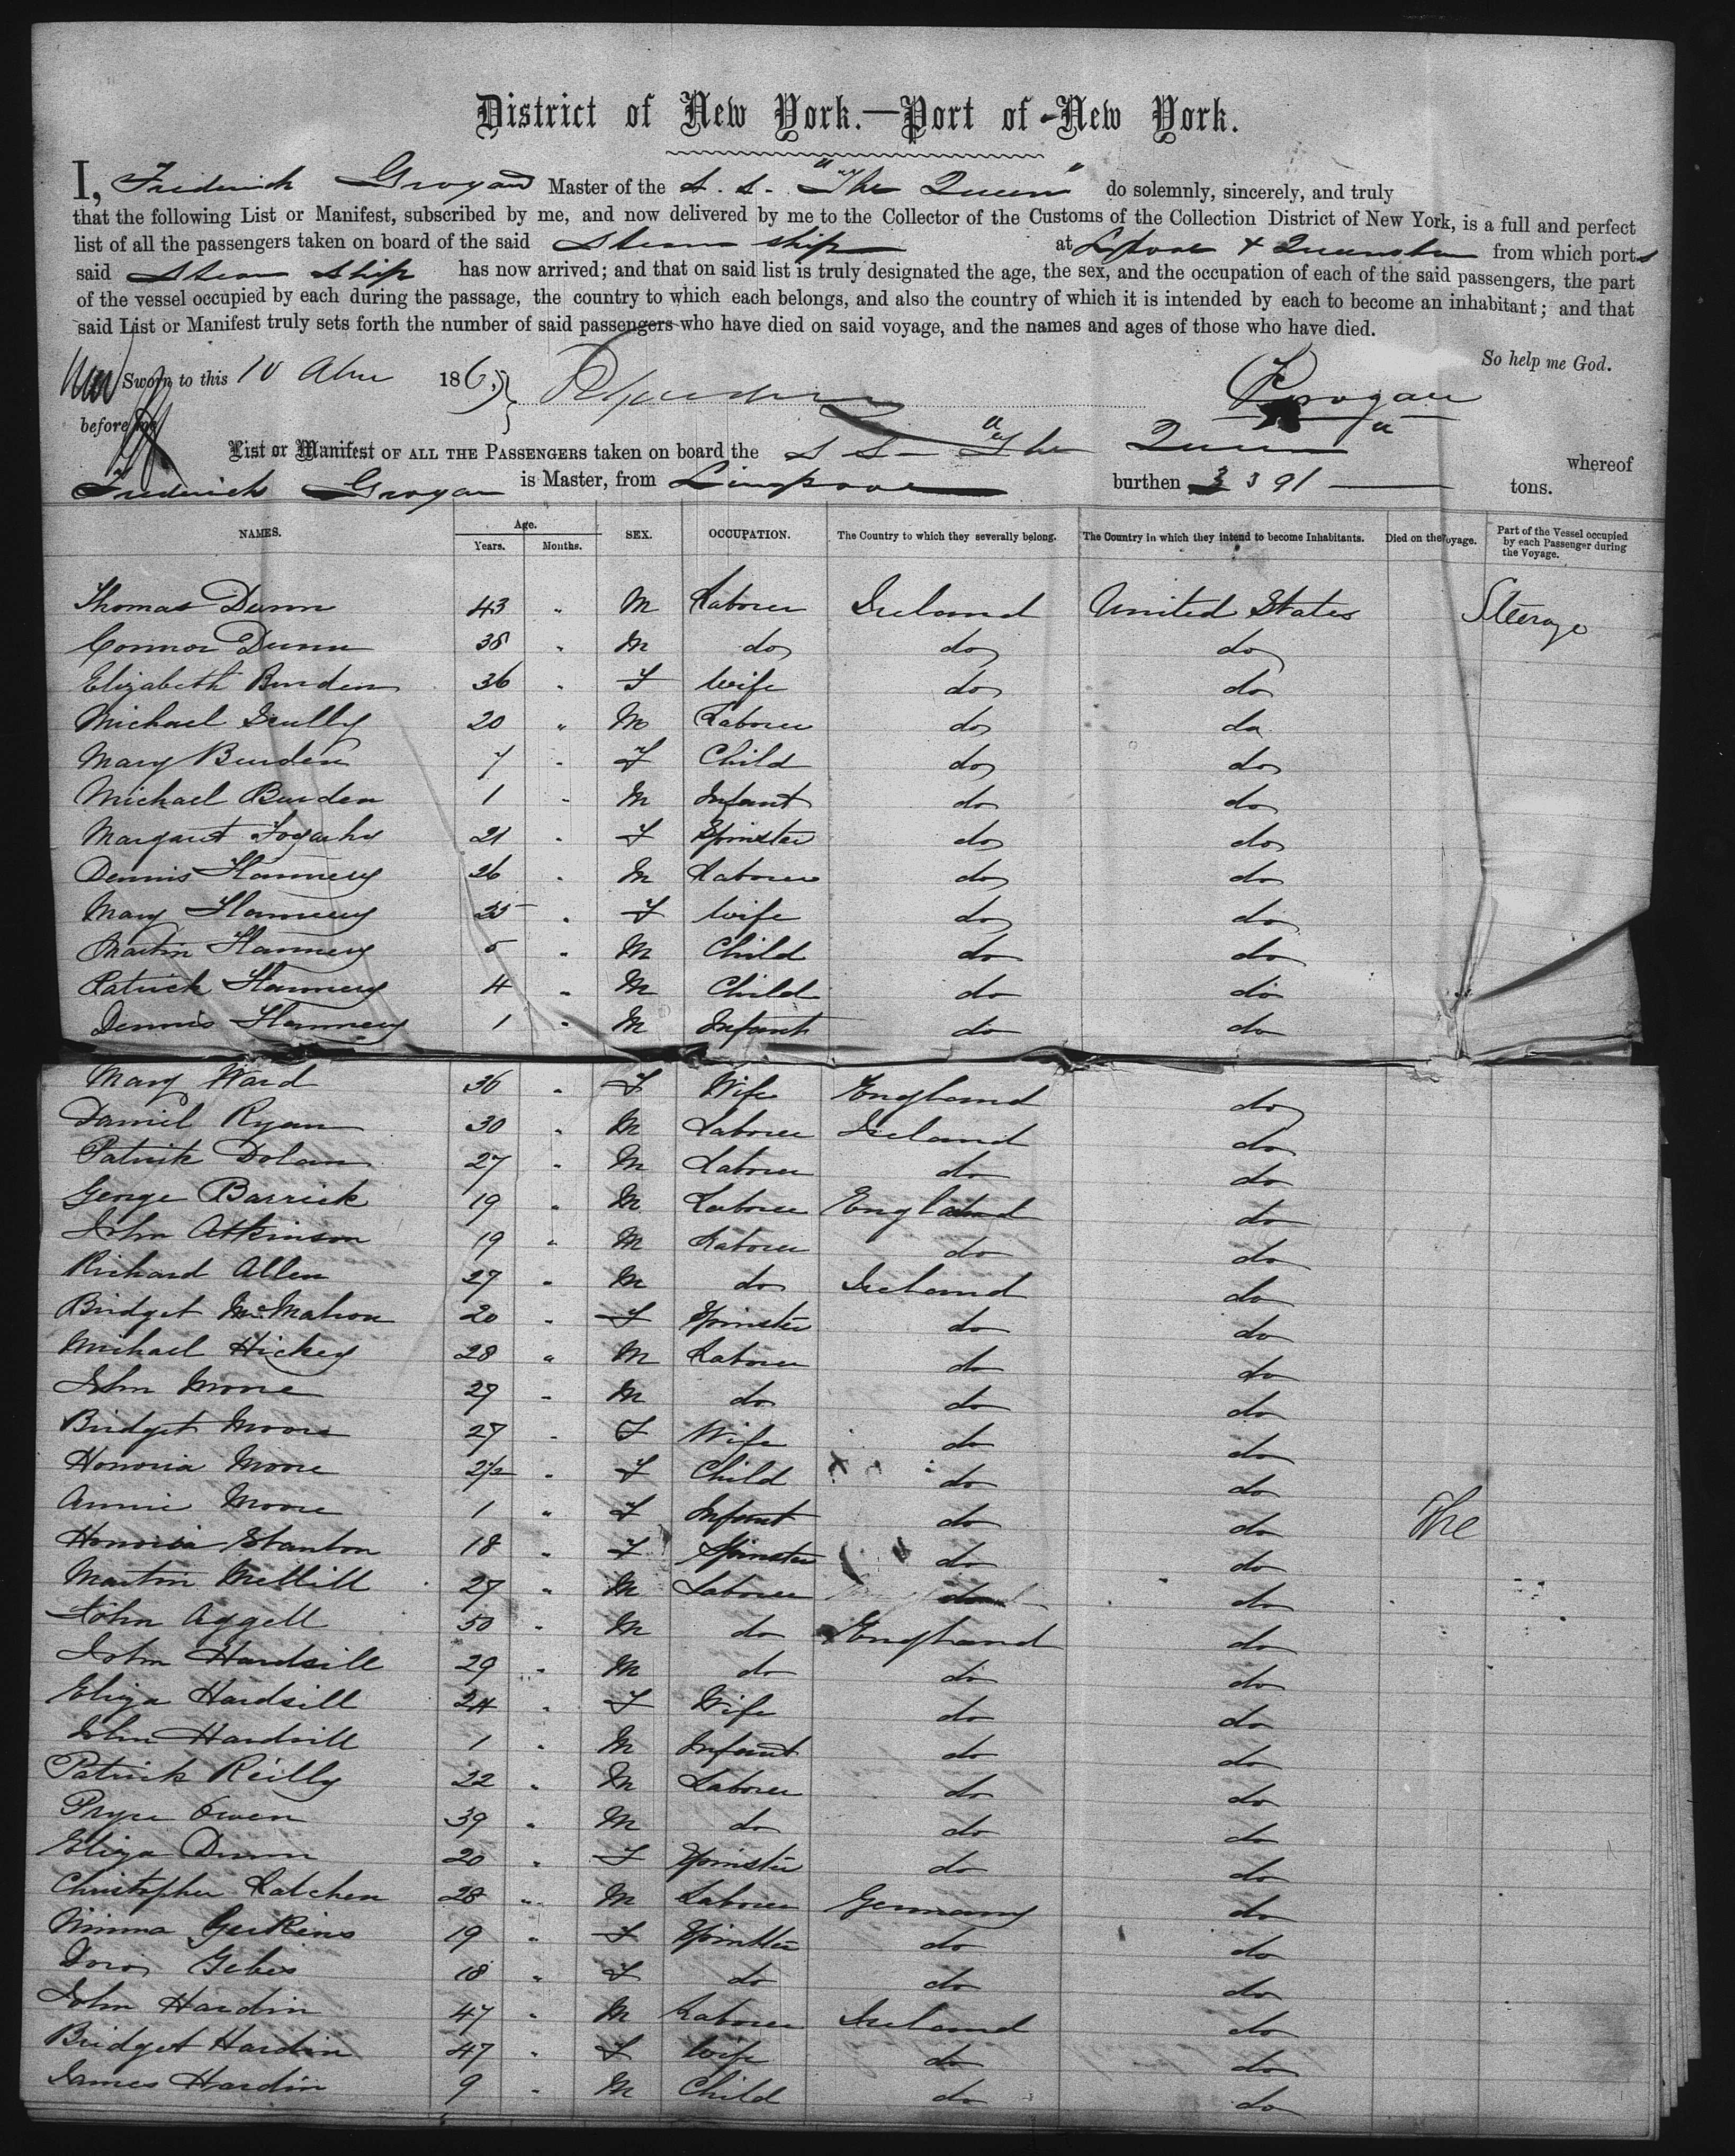 District of New York.—Port of New York.
I, Frederick Grogan Master of the S. S. "The Queen" do solemnly, sincerely, and truly
that the following List or Manifest, subscribed by me, and now delivered by me to the Collector of the Customs of the Collection District of New York, is a full and perfect
list of all the passengers taken on board of the said Steam ship at L'pool & Queenstn from which ports
said Steam Ship has now arrived; and that on said list is truly designated the age, the sex, and the occupation of each of the said passengers, the part
of the vessel occupied by each during the passage, the country to which each belongs, and also the country of which it is intended by each to become an inhabitant; and that
said List or Manifest truly sets forth the number of said passengers who have died on said voyage, and the names and ages of those who have died.
So help me God.
Sworn to this 10 186
before me
F Grogan
List or Manifest OF ALL THE PASSENGERS taken on board the S S- "The Queen" whereof
Frederick Grogan is Master, from Liverpool burthen 3391 tons.
NAMES. Age. Years. Months. SEX. OCCUPATION. The Country to which they severally belong. The Country in which they intend to become Inhabitants. Died on the Voyage. Part of the Vessel occupied by each Passenger during the Voyage.
Thomas Dunn 43 " M Laborer Ireland United States Steerage
Connor Dunn 38 " M do do do
Elizabeth Burden 36 " F Wife do do
Michael Scully 20 " M Laborer do do
Mary Burden 7 " F Child do do
Michael Burden 1 " M Infant do do
Margaret Fogarty 21 " F Spinster do do
Dennis Flannery 26 " M Laborer do do
Mary Flannery 25 " F Wife do do
Martin Flannery 5 " M Child do do
Patrick Flannery 4 " M Child do do
Dennis Flannery 1 " M Infant do do
Mary Ward 36 " F Wife England do
Daniel Ryan 30 " M Laborer Ireland do
Patrick Dolan 27 " M Laborer do do
George Barrick 19 " M Laborer England do
John Atkinson 19 " M Laborer do do
Richard Allen 27 " M do Ireland do
Bridget McMahon 20 " F Spinster do do
Michael Hickey 28 " M Laborer do do
John Moore 29 " M do do do
Bridget Moore 27 " F Wife do do
Honoria Moore 2½ " F Child do do
Annie Moore 1 " F Infant do do The
Honoria Stanton 18 " F Spinster do do
Martin Mellill 27 " M Laborer do do
John Aggell 50 " M do England do
John Hardsill 29 " M do do do
Eliza Hardsill 24 " F Wife do do
John Hardsill 1 " M Infant do do
Patrick Reilly 22 " M Laborer do do
Pryce Owen 39 " M do do do
Eliza Dunn 20 " F Spinster do do
Christopher Katchen 28 " M Laborer Germany do
Minna Gerkins 19 " F Spinster do do
Dora Gebes 18 " F do do do
John Hardin 47 " M Laborer Ireland do
Bridget Hardin 47 " F Wife do do
James Hardin 9 " M Child do do